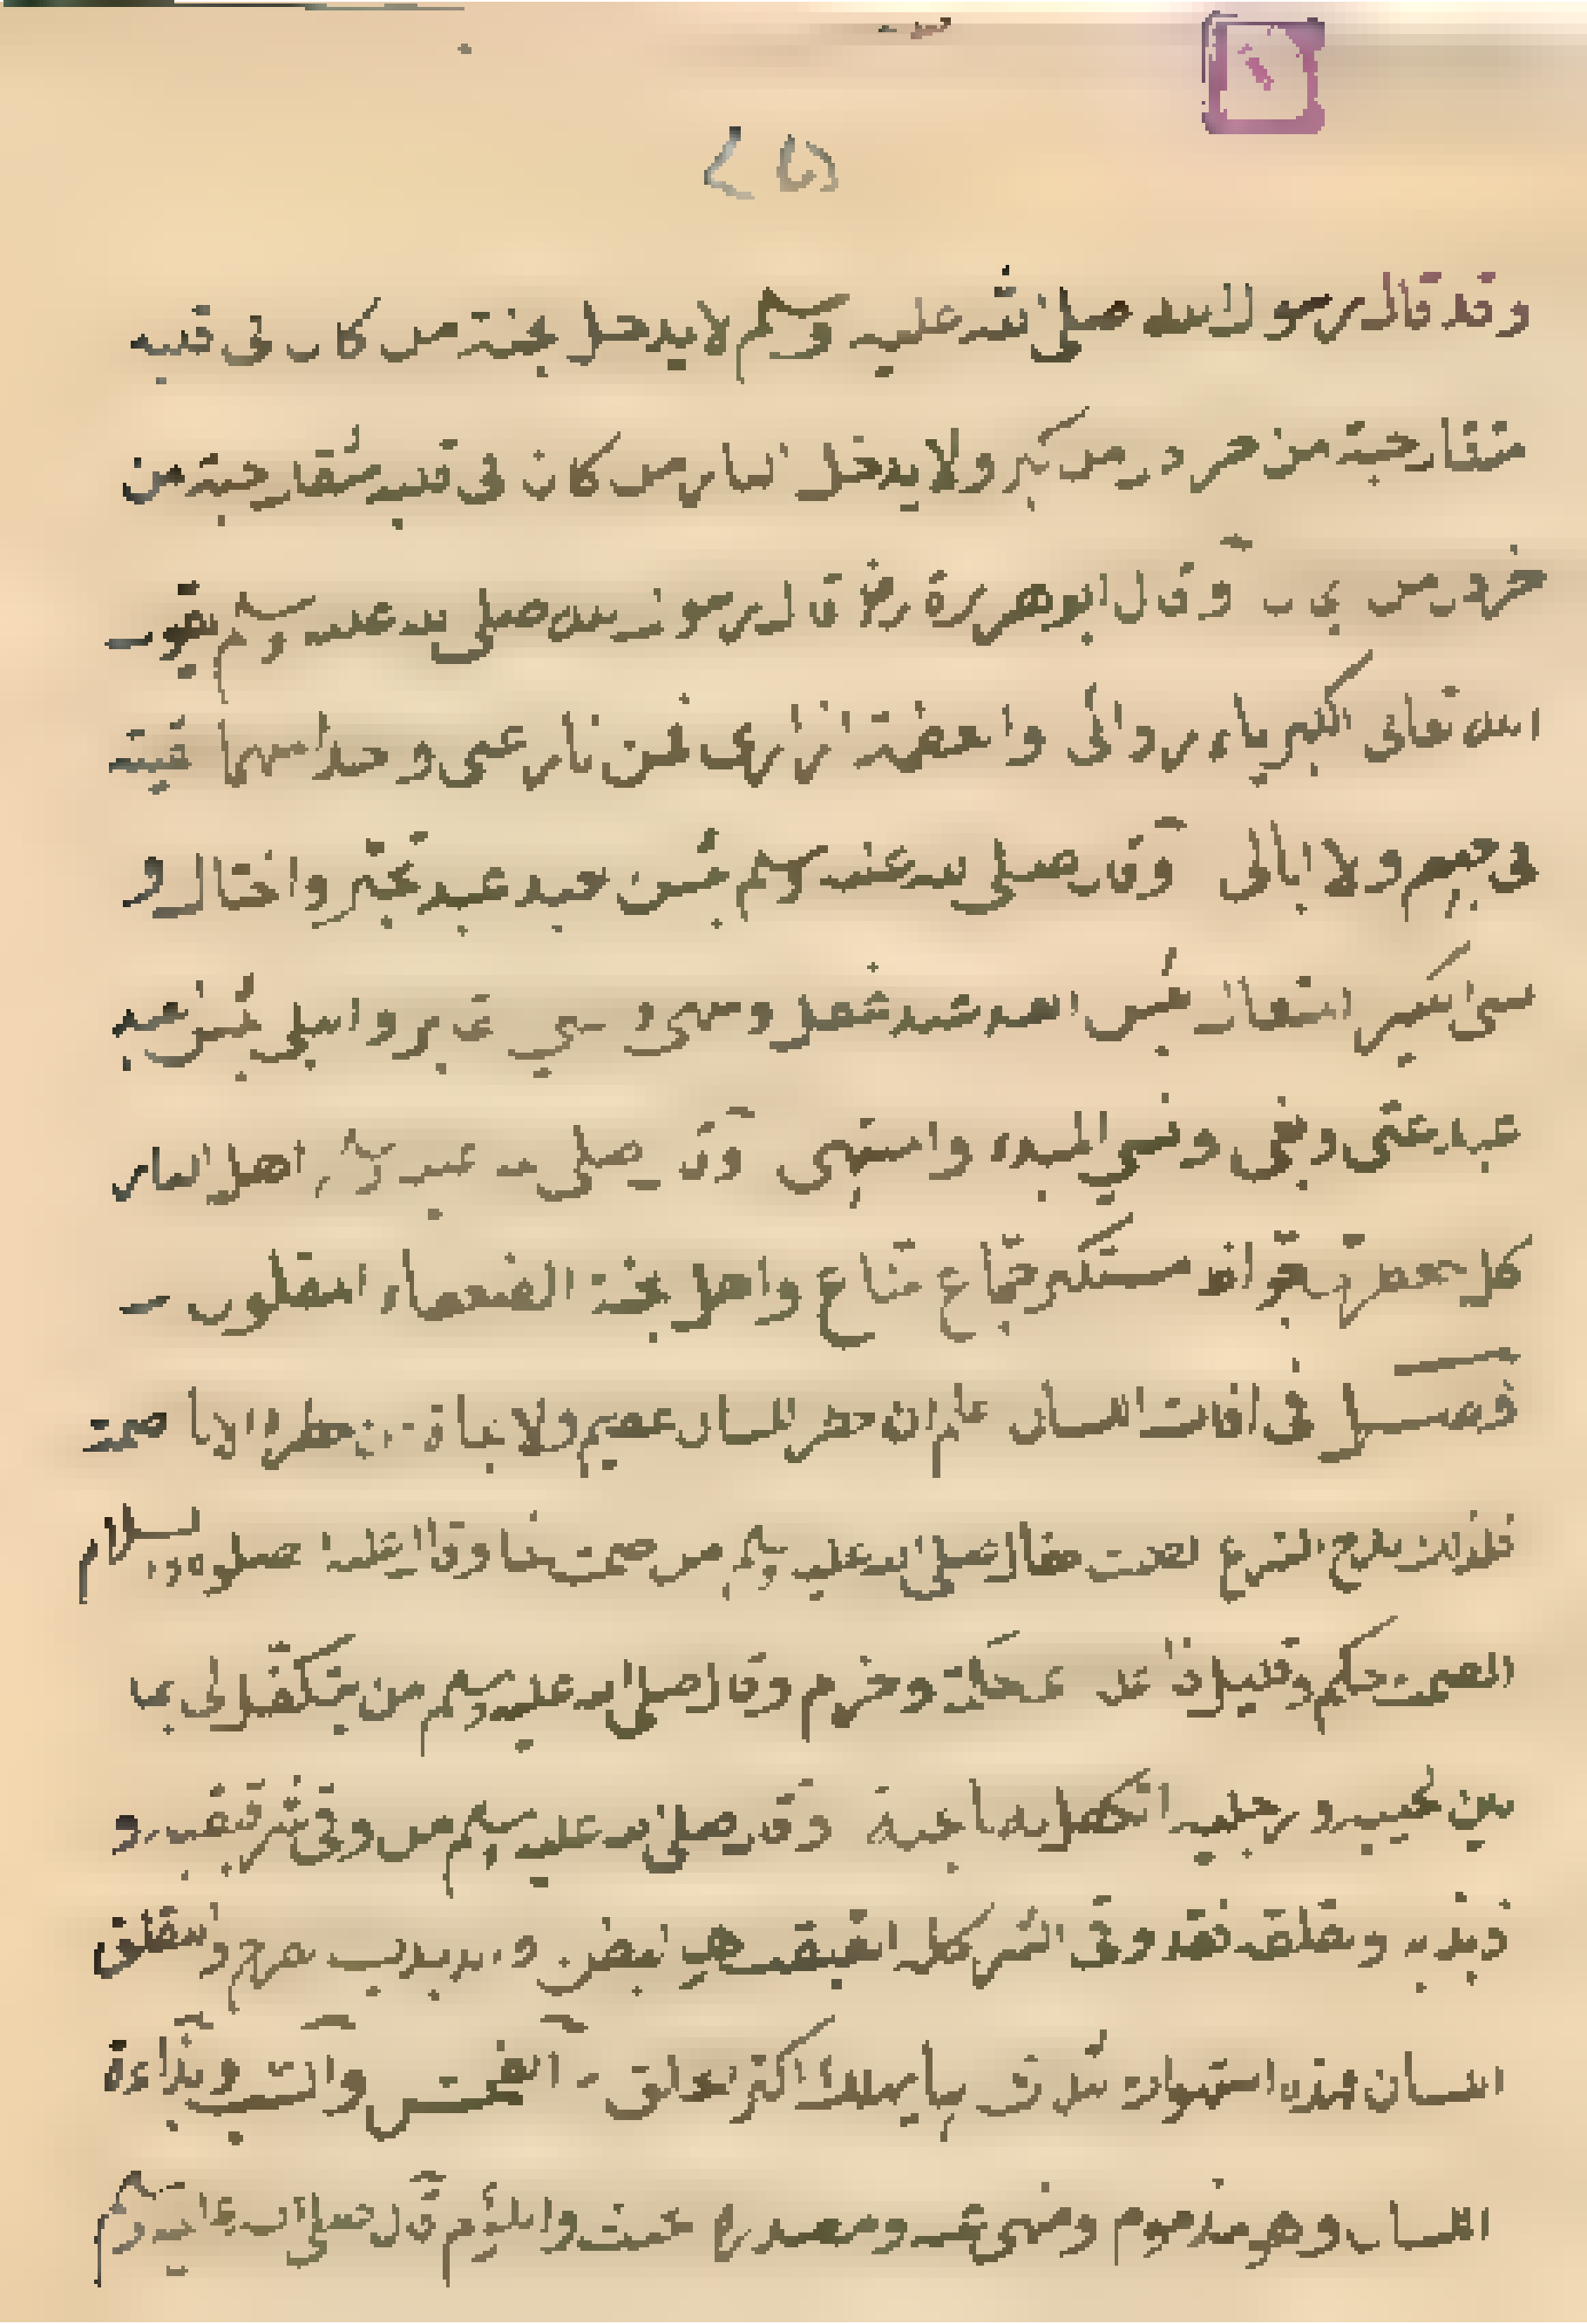 وقد قال رسول الله صلى الله عليه وسلم لا يدخل الجنة من كان فى قلبه
مثقال حبة من خردل من كبر ولا يدخل النار من كان فى قلبه مثقال حبة من
خردل من وقال ابو هريرة رض قال رسول الله صلى الله عليه وسلم يقول
الله تعالى الكبرياء ردائى والعظمة ازارى فمن نازعنى واحدا منهما القيته
فى جهنم ولا ابالى وقال صلى الله عليه وسلم بئس العبد عبد تجبر واختال و
نسى الكبير المتعال بئس العبد عبد غفل وسهى ونسي المقابر والبلى بئس العبد
عبد عتى وبغى ونسي المبدء والمنتهى وقال صلى الله عليه وسلم اهل النار
كل جعظرى جواظ مستكبر جماع مناع واهل الجنة الضعفاء المقلون
فصل فى افات اللسان اعلم ان خطر اللسان عظيم ولا نجاة من خطره الا بالصمت
فلذلك مدح الشرع الصمت فقال صلى الله عليه وسلم من صمت نجا وقال عليه الصلوة والسلام
الصمت حكم وقليل فاعله حكمة وحزم وقال صلى الله عليه وسلم من يتكفل لى بما
بين لحييه ورجليه اتكفل له بالجنة وقال صلى الله عليه وسلم من وقى شر قبقبه و
ذبذبه ولقلقه فقد وقى الشر كله القبقب هو البطن والذبذب الفرج واللقلق
اللسان فهذه الشهوات الثلاث بها يهلك اكثر الخلق الفحش والسب وبذاءة
اللسان وهو مذموم ومنهى عنه ومصدره الخبث واللؤم قال صلى الله عليه وسلم